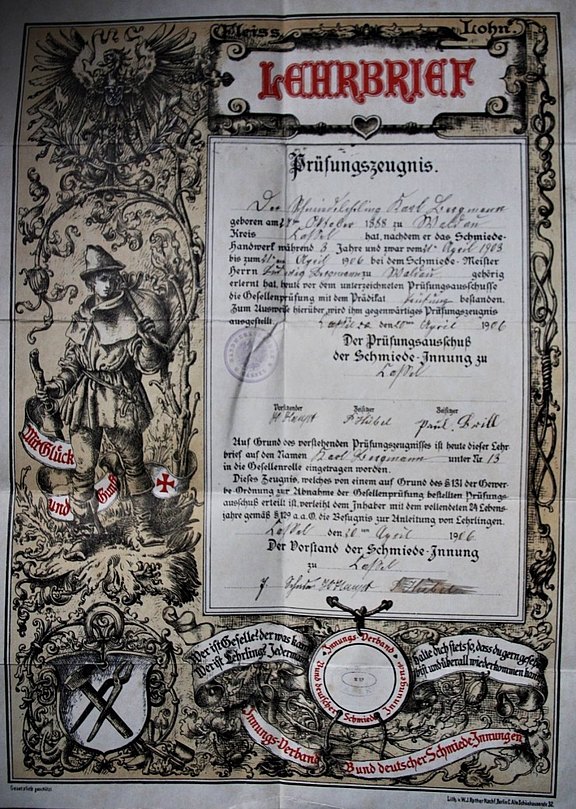 Fleiss Lohn.
LEHRBRIEF
Prüfungszeugnis.
Der Schmiedelehrling Karl Bergmann
geboren am 27ten Oktober 1888 zu Waldau
Kreis Cassel hat, nachdem er das Schmiede-
Handwerk während 3 Jahre und zwar vom 1. April 1903
bis zum April 1906 bei dem Schmiede-Meister
Herrn Ludwig Bergmann zu Waldau gehörig
erlernt hat, heute vor dem unterzeichneten Prüfungsausschusse
die Gesellenprüfung mit dem Prädikat bestanden.
Zum Ausweise hierüber wird ihm gegenwärtiges Prüfungszeugnis
ausgestellt. Cassel den 20ten April 1906
Der Prüfungsausschuß
der Schmiede-Innung zu
Cassel
Vorsitzender Beisitzer Beisitzer
H Haupt Paul Brill
Auf Grund des vorstehenden Prüfungszeugnisses ist heute dieser Lehr
brief auf den Namen Karl Bergmann unter Nr. 13
in die Gesellenrolle eingetragen worden.
Dieses Zeugnis, welches von einem auf Grund des § 131 der Gewer
be-Ordnung zur Abnahme der Gesellenprüfung bestellten Prüfungs-
ausschuß erteilt ist, verleiht dem Inhaber mit dem vollendeten 24 Lebens
jahre gemäß § 129 a.a.O. die Befugnis zur Anleitung von Lehrlingen.
Cassel den 20ten April 1906
Der Vorstand der Schmiede-Innung
zu Cassel
H Haupt
Mit Glück
und Gunst
Wer ist Geselle? der was kann
Wer ist Lehrling? Jederman
Innungs-Verband
Bund deutscher Schmiede Innungen
halte dich stets so, dass du gern gesehen
bist und überall wiederkommen kannst
Innungs-Verband Bund deutscher Schmiede Innungen
Gesetzlich geschützt
Lith. v. W. J. Rother Nachf. Berlin C. Alte Schönhauserstr. 32.